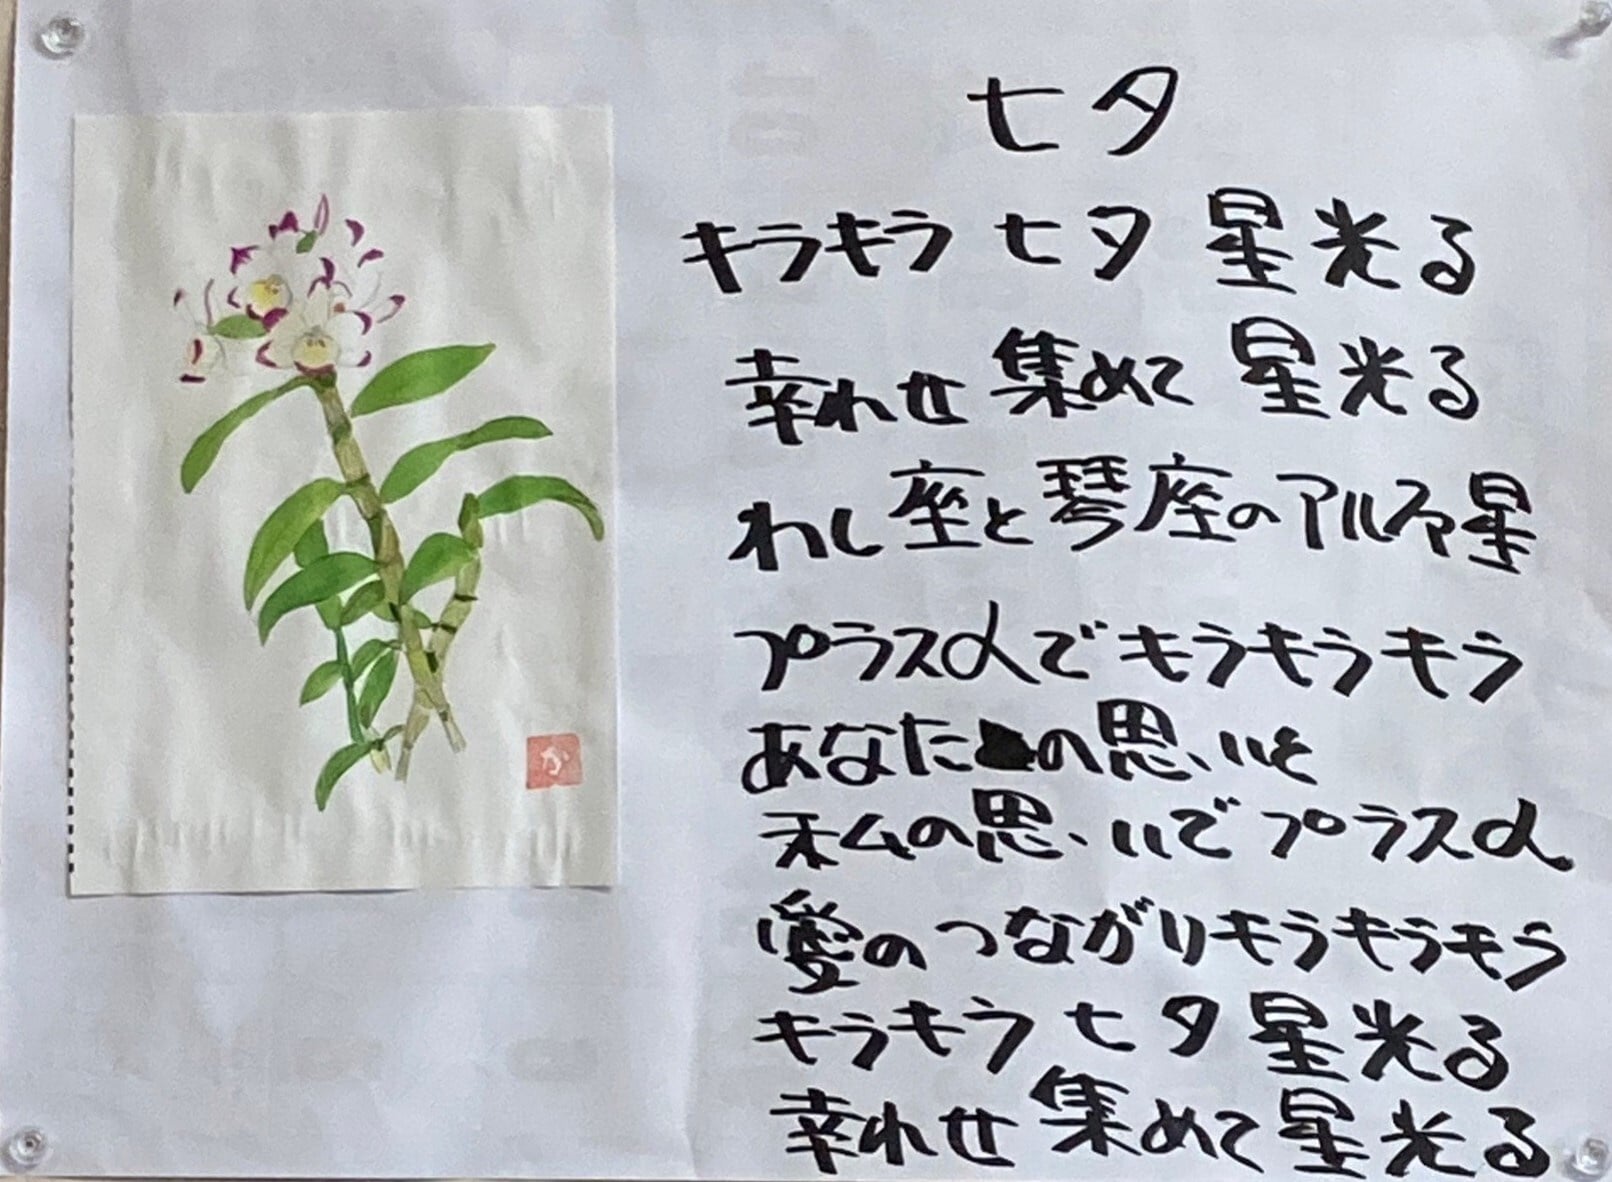 七夕
キラキラ 七夕 星光る
幸れせ 集めて 星光る
わし座と琴座のアルファ星
プラスαで キラキラキラ
あなたの思いと
私の思いでプラスα
愛のつながりキラキラキラ
キラキラ 七夕 星光る
幸れせ 集めて星光る
か